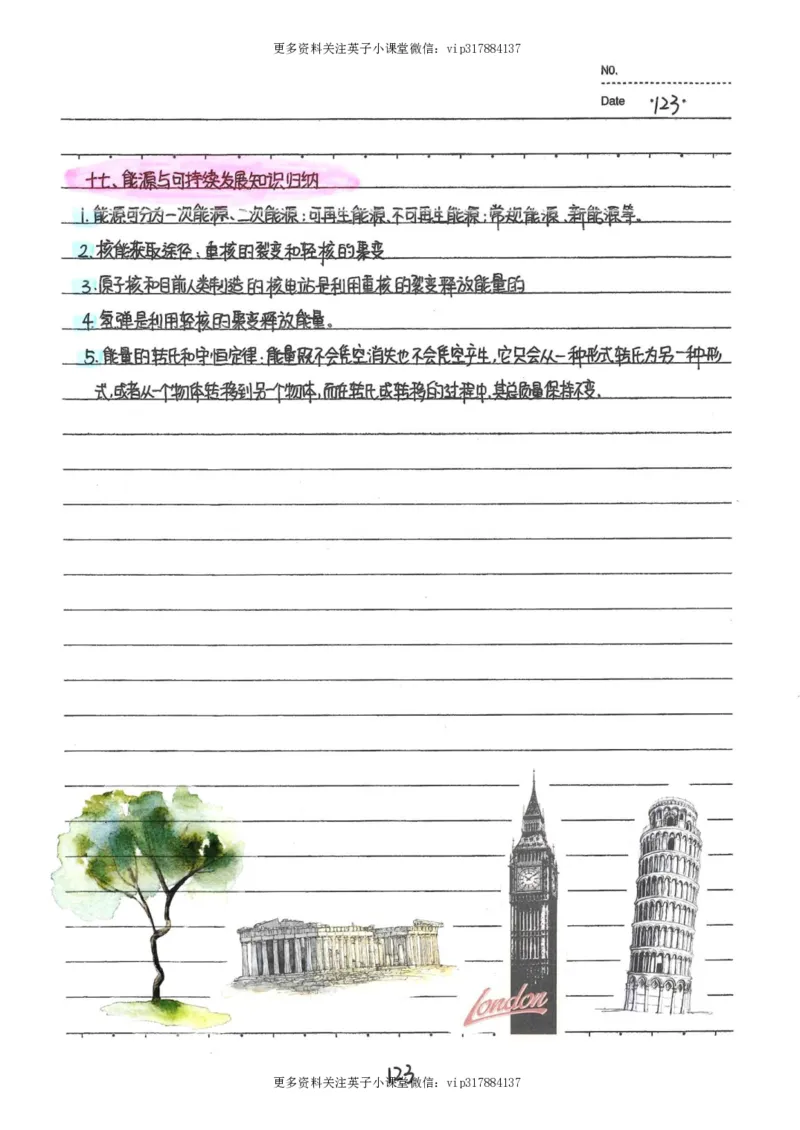 更多资料关注英子小课堂微信：vip317884137
NO.
Date ·123·
十七、能源与可持续发展知识归纳
1.能源可分为一次能源、二次能源；可再生能源、不可再生能源；常规能源、新能源等。
2.核能获取途径：重核的裂变和轻核的聚变
3.原子核和目前人类制造的核电站是利用重核的裂变释放能量的
4.氢弹是利用轻核的聚变释放能量。
5.能量的转氏和守恒定律：能量既不会凭空消失也不会凭空产生，它只会从一种形式转氏为另一种形
式，或者从一个物体转移到另一个物体，而在转氏或转移的过程中，其总质量保持不变.
London
123
更多资料关注英子小课堂微信：vip317884137